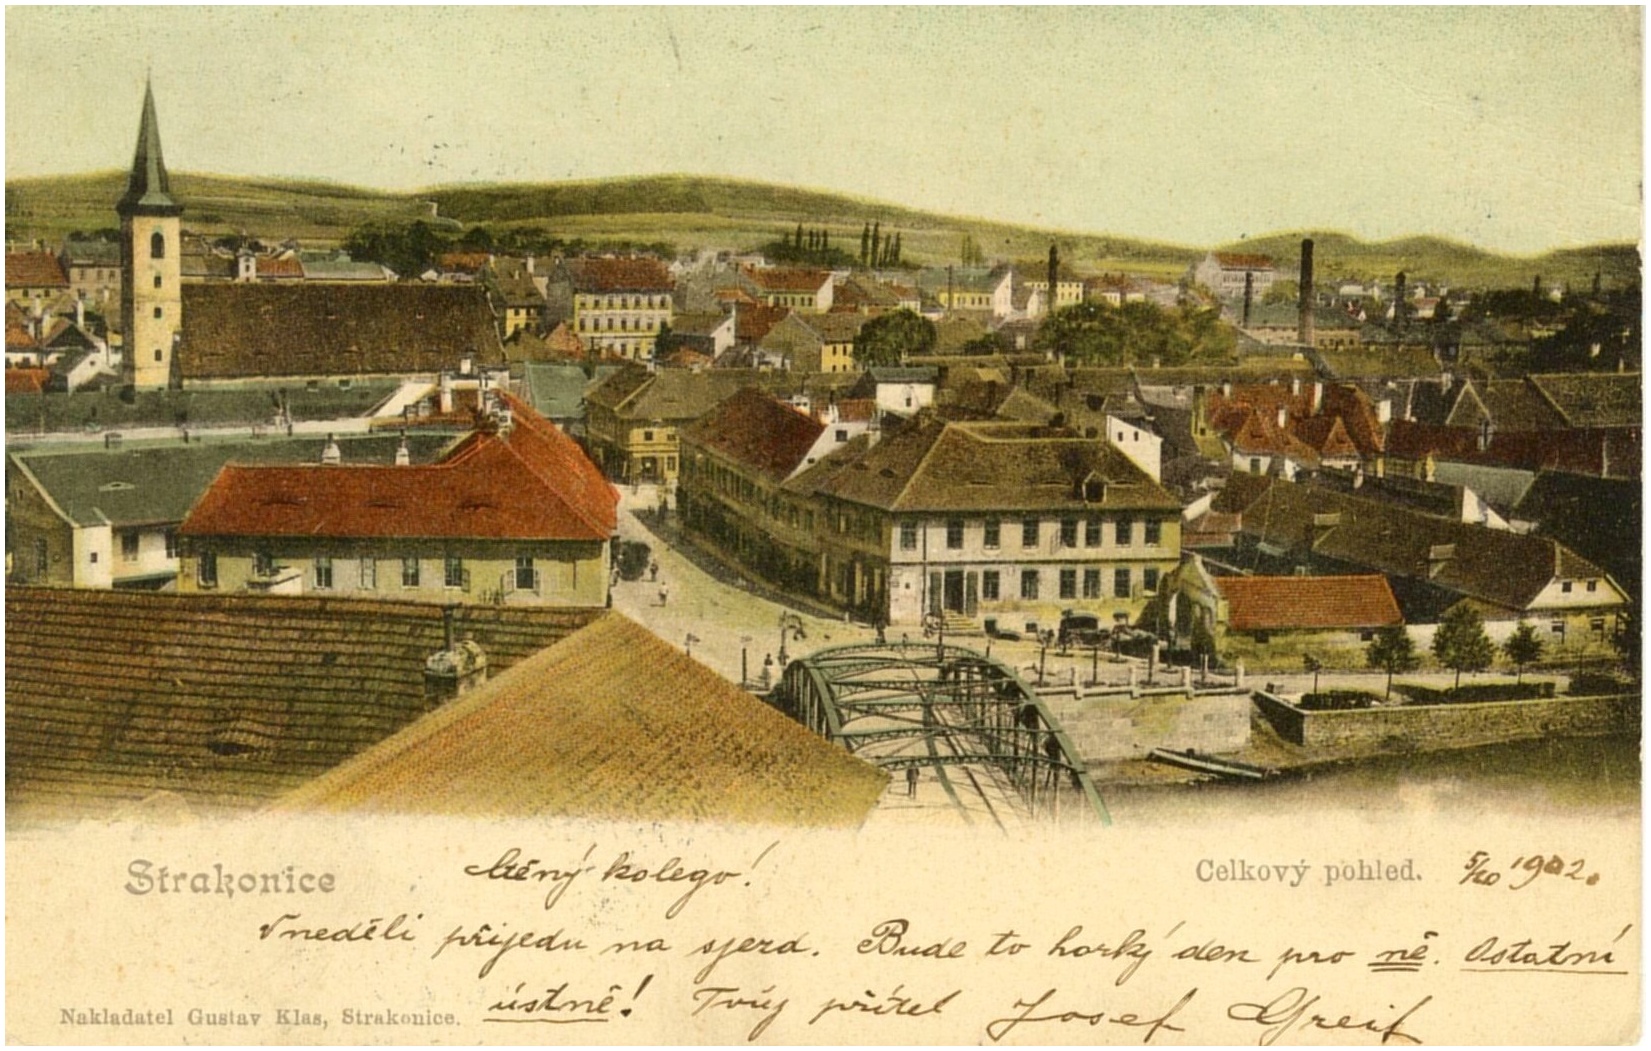 Strakonice
Ctěný kolego!
Celkový pohled. 5/10 1902.
V neděli přijedu na sjezd. Bude to horký den pro ně. Ostatní
ústně! Tvůj přítel Josef Greif
Nakladatel Gustav Klas, Strakonice.